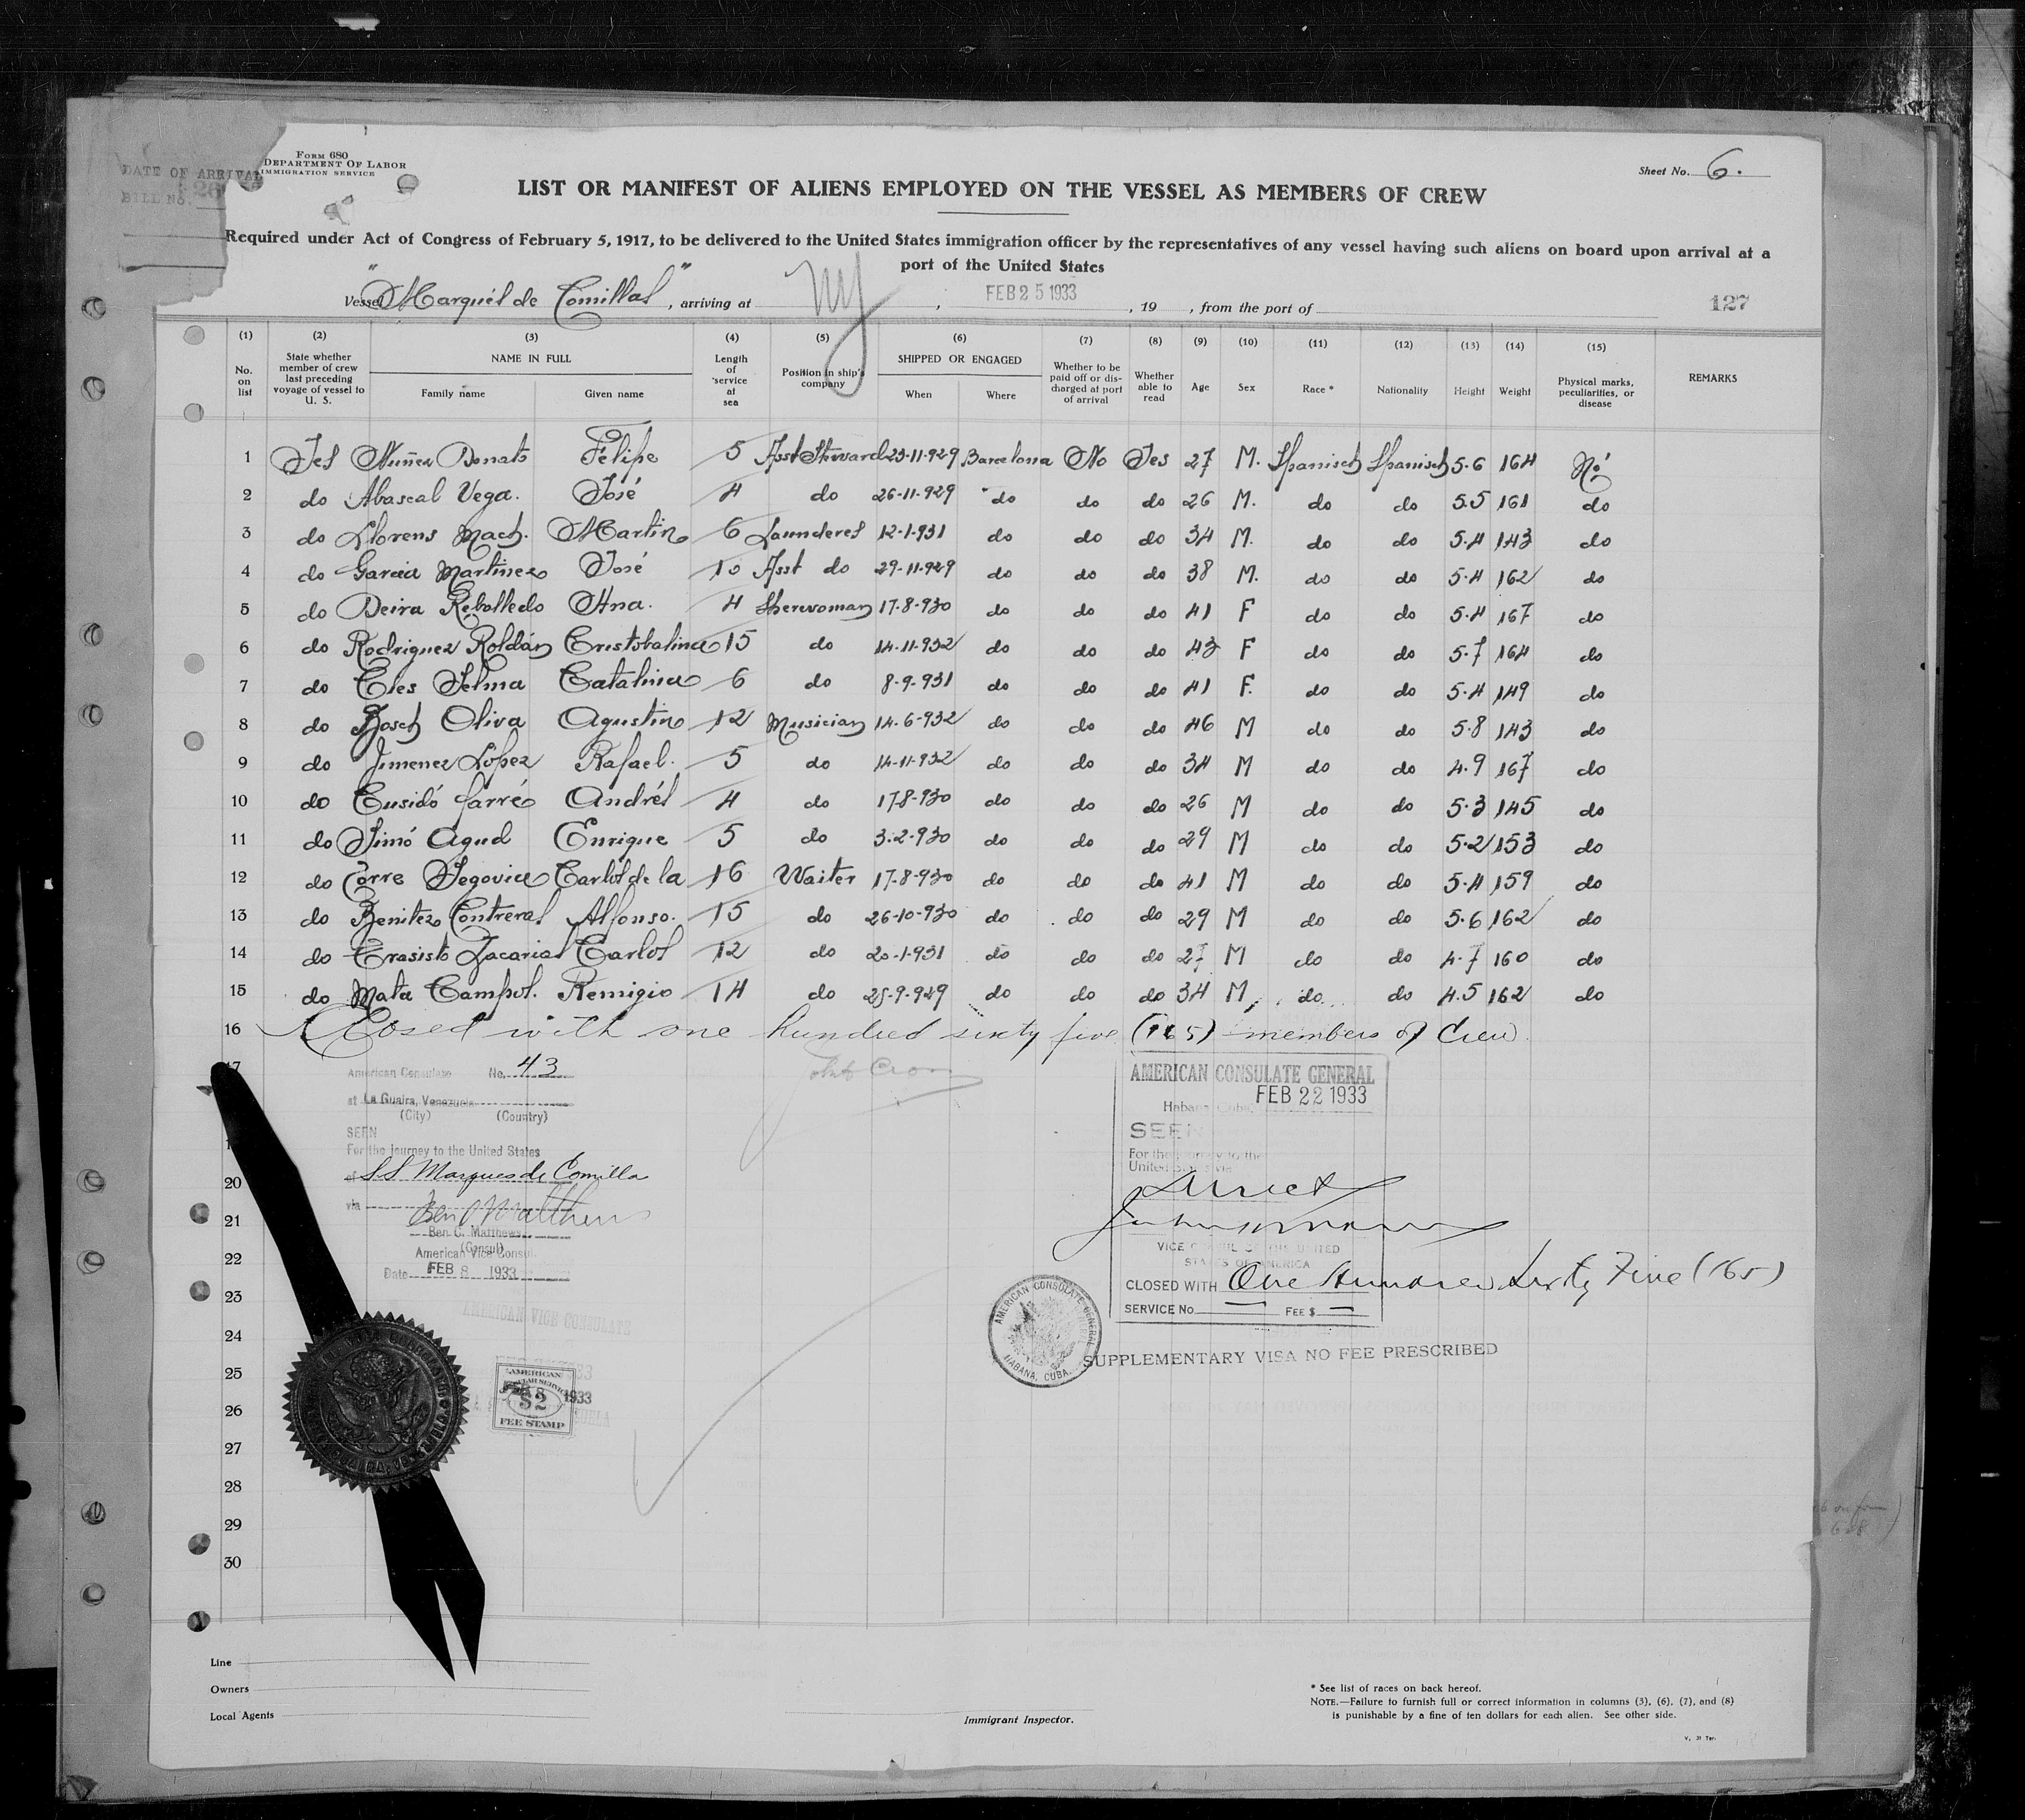 FORM 680
DEPARTMENT OF LABOR
IMMIGRATION SERVICE
DATE OF ARRIVAL
BILL NO. 26
Sheet No. 6.
LIST OR MANIFEST OF ALIENS EMPLOYED ON THE VESSEL AS MEMBERS OF CREW
Required under Act of Congress of February 5, 1917, to be delivered to the United States immigration officer by the representatives of any vessel having such aliens on board upon arrival at a
port of the United States
Vessel "Marqués de Comillas", arriving at Ny, FEB 25 1933, 19 , from the port of
127
(1) (2) (3) (4) (5) (6) (7) (8) (9) (10) (11) (12) (13) (14) (15)
No. on list State whether member of crew last preceding voyage of vessel to U. S. NAME IN FULL Family name Given name Length of service at sea Position in ship's company SHIPPED OR ENGAGED When Where Whether to be paid off or discharged at port of arrival Whether able to read Age Sex Race * Nationality Height Weight Physical marks, peculiarities, or disease REMARKS
1 Yes Nuñez Donato Felipe 5 Asst Steward 23-11-929 Barcelona No Yes 27 M. Spanisch Spanisch 5.6 164 No
2 do Abascal Vega. José 4 do 26-11-929 do do do 26 M. do do 5.5 161 do
3 do Llorens Mach. Martin 6 Launderes 12-1-931 do do do 34 M. do do 5.4 143 do
4 do Garcia Martinez José 10 Asst do 29-11-929 do do do 38 M. do do 5.4 162 do
5 do Deira Rebolledo Ana. 4 17-8-930 do do do 41 F do do 5.4 167 do
6 do Rodriguez Roldán Cristobalina 15 do 14-11-932 do do do 43 F do do 5.7 164 do
7 do Cles Selma Catalina 6 do 8-9-931 do do do 41 F. do do 5.4 149 do
8 do Bosch Oliva Agustin 12 Musician 14-6-932 do do do 46 M do do 5.8 143 do
9 do Jimenez López Rafael. 5 do 14-11-932 do do do 34 M do do 4.9 167 do
10 do Cusidó farré Andrés 4 do 17-8-930 do do do 26 M do do 5.3 145 do
11 do Simó Agud Enrique 5 do 3-2-930 do do do 29 M do do 5.2 153 do
12 do Torre Segovia Carlos de la 16 Waiter 17-8-930 do do do 41 M do do 5.4 159 do
13 do Benitez Contreras Alfonso. 15 do 26-10-930 do do do 29 M do do 5.6 162 do
14 do Trasisto Zacarias Carlos 12 do 20-1-931 do do do 27 M do do 4.7 160 do
15 do Mata Campos. Remigio 14 do 25-9-929 do do do 34 M do do 4.5 162 do
16 Closed with one hundred sixty five (165) members of Crew.
American Consulate No. 43
at La Guaira, Venezuela
(City) (Country)
SEEN
For the journey to the United States
of SS Marques de Comilla
via
Ben C Matthews
Ben C. Matthews
(Consul)
American Vice Consul
Date FEB 8 1933
AMERICAN VICE CONSULATE
AMERICAN
FEB 8 1933
$2
FEE STAMP
AMERICAN CONSULATE GENERAL
FEB 22 1933
Habana, Cuba
SEEN
For the journey to the
United States via
direct
VICE CONSUL OF THE UNITED
STATES OF AMERICA
CLOSED WITH One Hundred Sixty Five (165)
SERVICE No. — FEE $ —
AMERICAN CONSULATE GENERAL
HABANA, CUBA.
SUPPLEMENTARY VISA NO FEE PRESCRIBED
20
21
22
23
24
25
26
27
28
29
30
Line
Owners
Local Agents
Immigrant Inspector.
* See list of races on back hereof.
NOTE.—Failure to furnish full or correct information in columns (3), (6), (7), and (8)
is punishable by a fine of ten dollars for each alien. See other side.